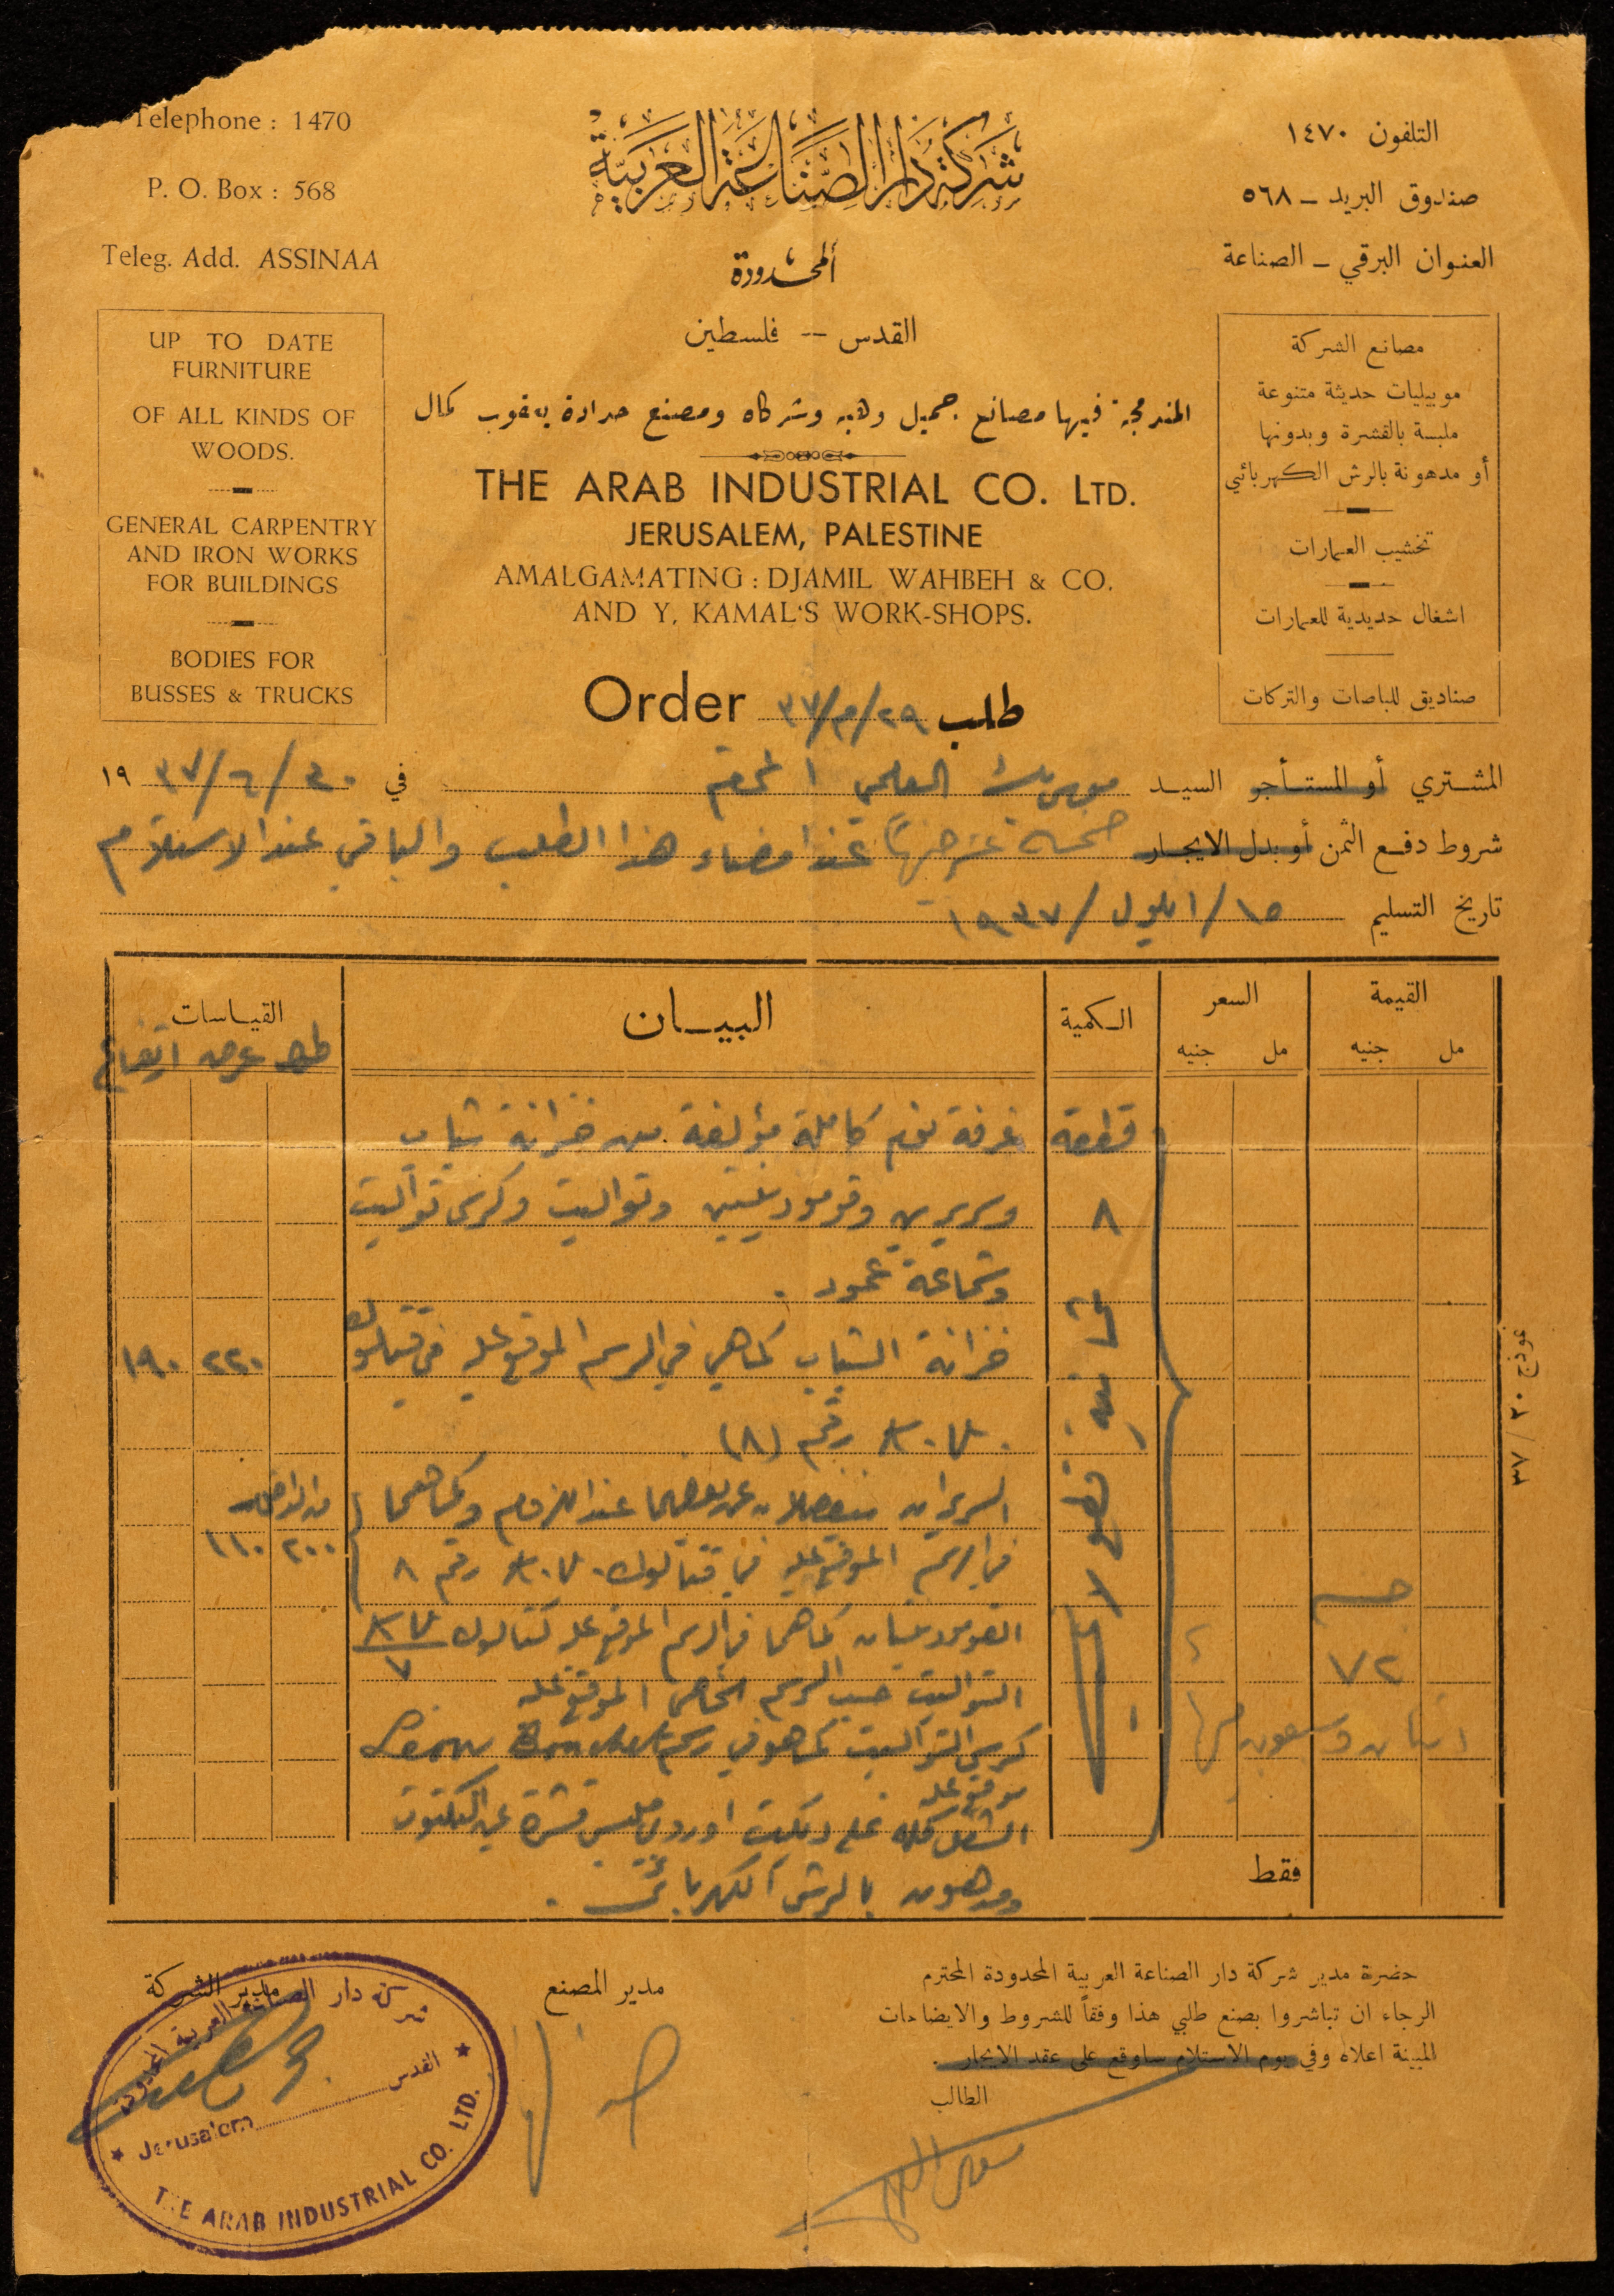 Telephone : 1470
P. O. Box : 568
Teleg. Add. ASSINAA
شركة دار الصناعة العربية
المحدودة
القدس -- فلسطين
التلفون ١٤٧٠
صندوق البريد ـ ٥٦٨
العنوان البرقي ـ الصناعة
UP TO DATE
FURNITURE
OF ALL KINDS OF
WOODS.
GENERAL CARPENTRY
AND IRON WORKS
FOR BUILDINGS
BODIES FOR
BUSSES & TRUCKS
المندمجة فيها مصانع جميل وهبه وشركاه ومصنع حدادة يعقوب كمال
THE ARAB INDUSTRIAL CO. LTD.
JERUSALEM, PALESTINE
AMALGAMATING : DJAMIL WAHBEH & CO.
AND Y, KAMAL'S WORK-SHOPS.
مصانع الشركة
موبيليات حديثة متنوعة
ملبسة بالقشرة وبدونها
أو مدهونة بالرش الكهربائي
تخشيب العمارات
اشغال حديدية للعمارات
صناديق للباصات والتركات
Order ٢٩/م/٣٧ طلب
المشتري أو المستأجر السيد موسى بك العلمي المحترم في ٣٠/٦/٣٧ ١٩
شروط دفع الثمن أو بدل الايجار خمسة عشر جنيها عند امضاء هذا الطلب والباقي عند الاستلام
تاريخ التسليم ١٥/ايلول/١٩٣٧
القيمة السعر الكمية البيان القياسات
مل جنيه مل جنيه طول عرض ارتفاع
قطعة غرفة نوم كاملة مؤلفة من خزانة ثياب
٨ وسريرين وقومودينتين وتواليت وكرسي تواليت
وشماعة عمود .
خزانة الثياب كما هي في الرسم الموقع عليه في قتالوك ٢٢٠ ١٩٠
رقم (٨)
السريران ينفصلان عن بعضهما عند اللزوم وكما هما من الداخل
في الرسم الموقع عليه في قتالوك رقم ٨ ٢٠٠ ١١٠
ثمانية قطع لا
القومودينتان كما هما في الرسم الموقع عليه كتالوك ٧
٧٢
التواليت حسب الرسم الخاص الموقع عليه
اثنان وسبعون جنيها
كرسي التواليت كما هو في رسم Léon Bouchet
موقع عليه
الشغل كله على لتيه اوردي ملبس قشرة
ومدهون بالرش الكهربائي .
فقط
نموذج ٢٠/٣٧
حضرة مدير شركة دار الصناعة العربية المحدودة المحترم
الرجاء ان تباشروا بصنع طلبي هذا وفقاً للشروط والايضاحات
المبينة اعلاه وفي يوم الاستلام ساوقع على عقد الايجار .
الطالب
مدير المصنع
مدير الشركة
شركة دار الصناعة العربية المحدودة
القدس
Jerusalem
THE ARAB INDUSTRIAL CO. LTD.